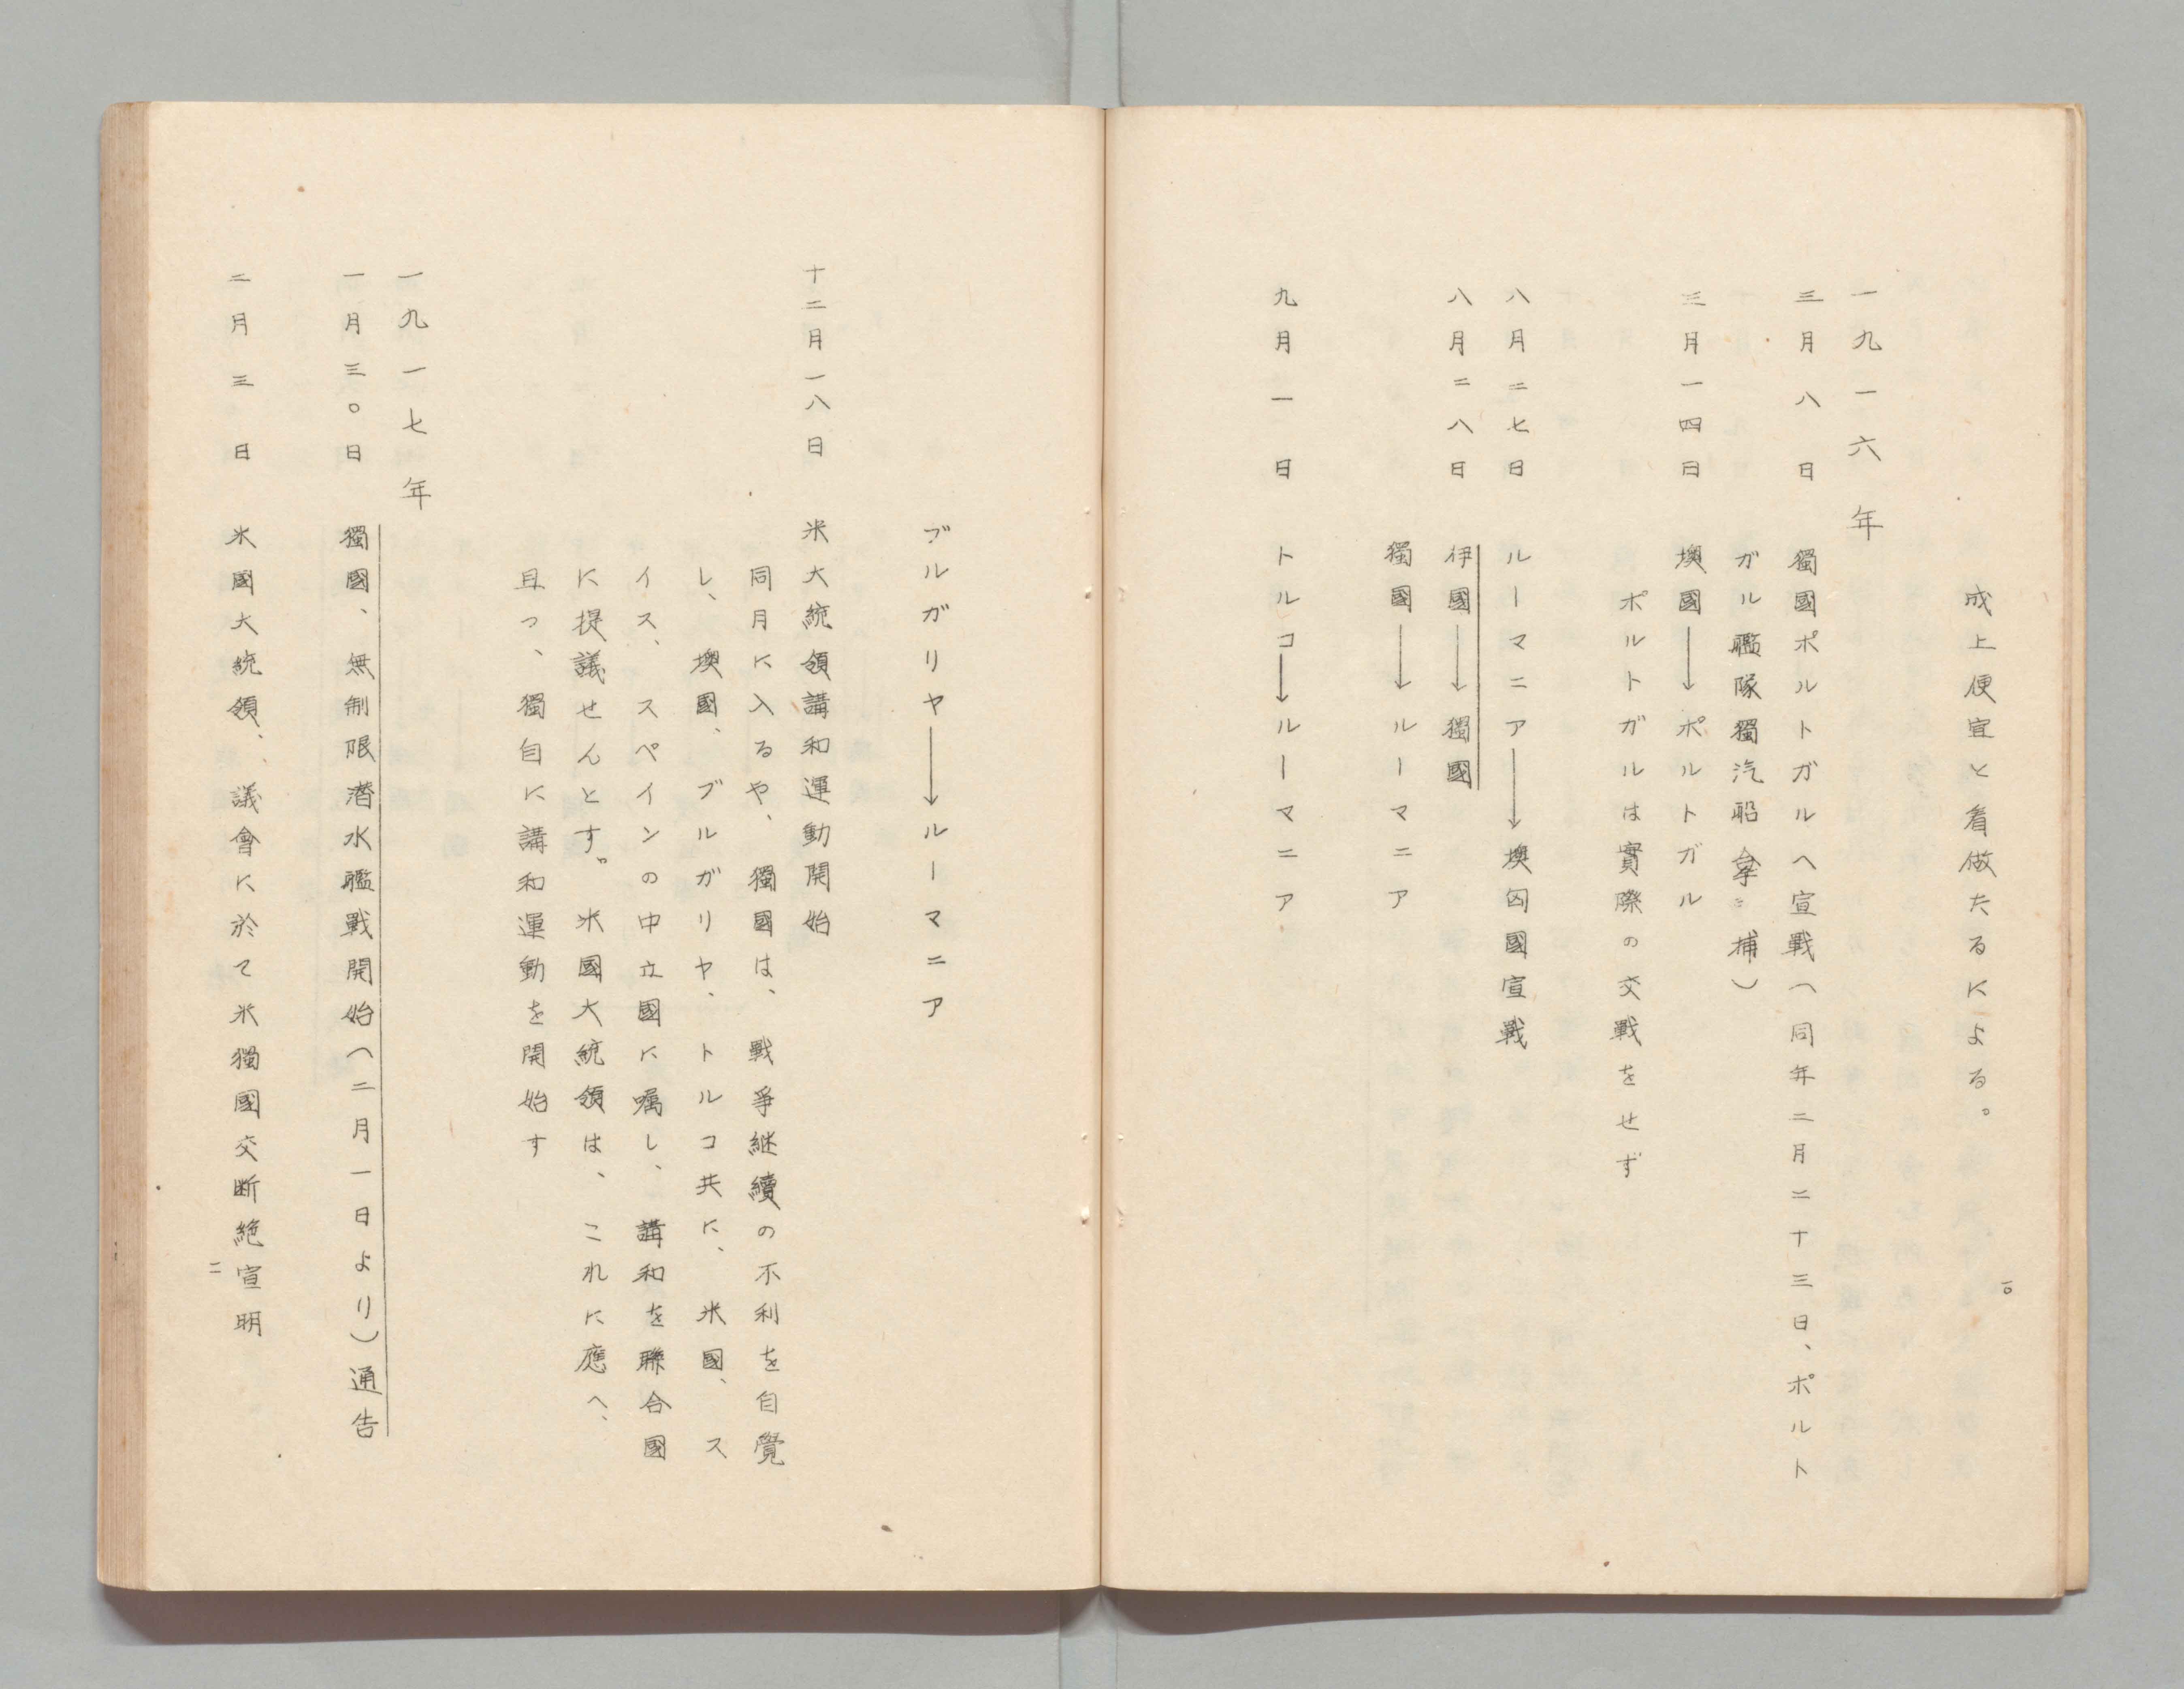 成上便宜と看做たるによる。
一九一六年
三月八日 獨國ポルトガルへ宣戰(同年二月二十三日、ポルト
ガル艦隊獨汽船拿捕)
三月一四日 墺國→ポルトガル
ポルトガルは實際の交戰をせず
八月二七日 ルーマニア→墺匈國宣戰
八月二八日 伊國→獨國
獨國→ルーマニア
九月一日 トルコ→ルーマニア
一〇
ブルガリヤ→ルーマニア
十二月一八日 米大統領講和運動開始
同月に入るや、獨國は、戰爭継續の不利を自覺
し、墺國、ブルガリヤ、トルコ共に、米國、ス
イス、スペインの中立國に嘱し、講和を聯合國
に提議せんとす。米國大統領は、これに應へ、
且つ、獨自に講和運動を開始す
一九一七年
一月三〇日 獨國、無制限潜水艦戰開始(二月一日より)通告
二月三日 米國大統領、議會に於て米獨國交断絶宣明